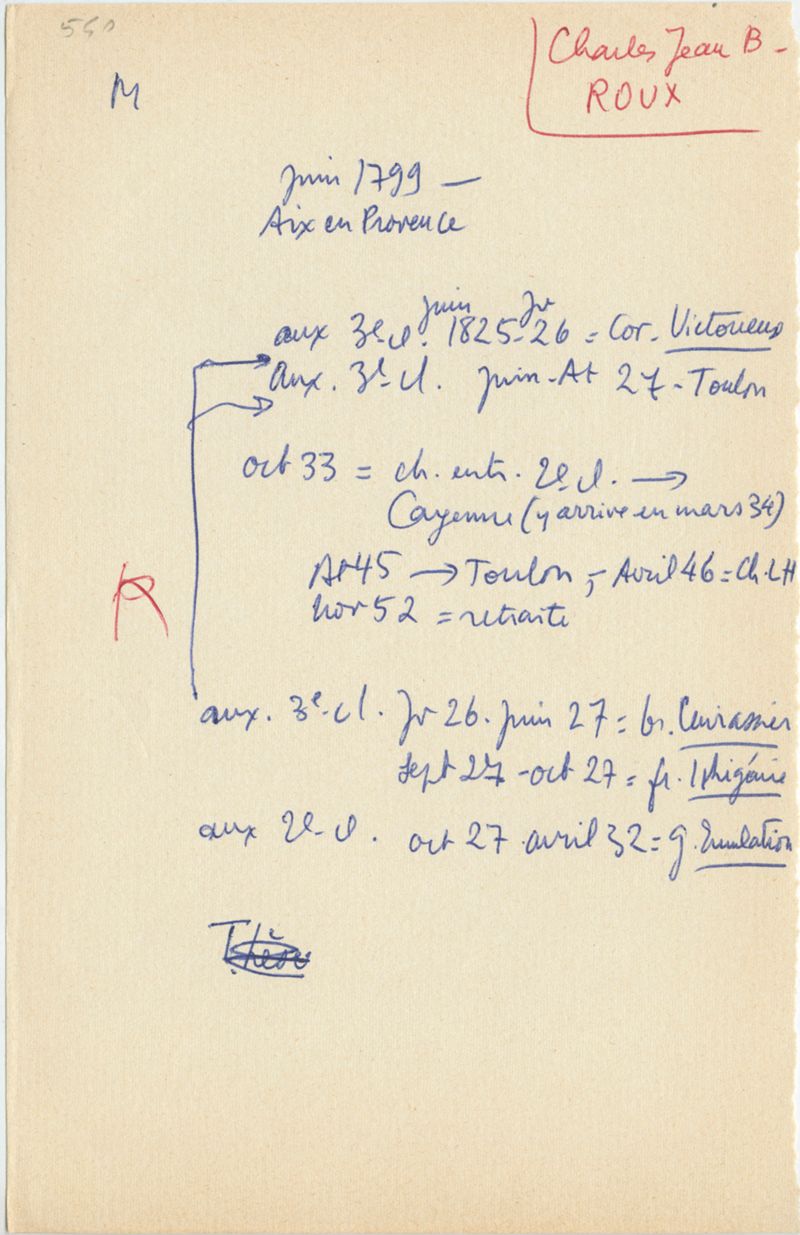 550
Charles Jean B-
ROUX
M
juin 1799 —
Aix en Provence
juin Jr
aux 3e cl. 1825-26 = Cor. Victorieux
aux. 3e cl. juin-At 27 - Toulon
oct 33 = ch. entr. 2e cl. →
Cayenne (y arrive en mars 34)
At 45 → Toulon, - Avril 46 = Ch. LH
Nov 52 = retraite
R
aux. 3e cl. Jr 26. juin 27 = br. Cuirassier
sept 27 - oct 27 = fr. Iphigénie
aux 2e cl. oct 27. avril 32 = g. Emulation